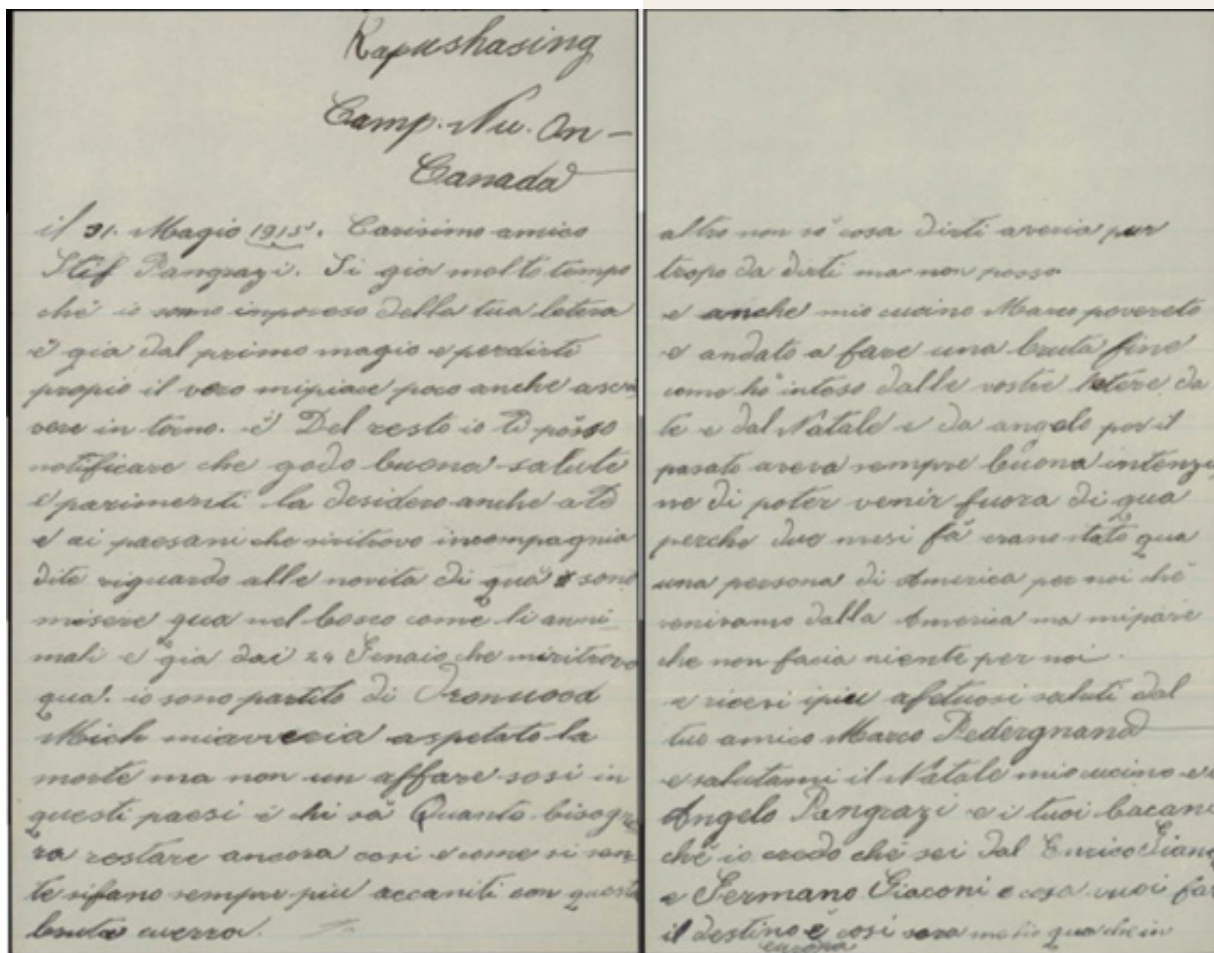 Kapushasing
Camp. Nu. On -
Canada
il 31. Magio 1915. Carisimo amico
Stef Pangrazi. Si gia molto tempo
ché io sono imposeso della tua letera
é gia dal primo magio e perdirti
propio il vero mipiace poco anche ascri
vere in torno. é Del resto io ti posso
notificare che godo buona salute
e parimenti la desidero anche a te
e ai paesani che siritrovo incompagnia
dite riguardo alle novita di quá sono
misere qua nel bosco come li anni
mali e gia dai 24 Genaio che miritrovo
qua. io sono partito di Ironwood
Mich miavrecia aspetato la
morte ma non un affare sosi in
questi paesi é hi sá Quanto bisogne
ra restare ancora cosi e come si sen
te sifano sempre piu accaniti con questa
bruta cuerra.
altro non só cosa dirti averia pur
tropo da dirti ma non posso
e anche mio cucino Marco povereto
e andato a fare una bruta fine
come hó inteso dalle vostre letere da
te e dal Natale e da angelo per il
pasato aveva sempre buona intenzi
ne di poter venir fuora di qua
perche due mesi fá erano stato qua
una persona di America per noi ché
venivamo dalla America ma mipare
che non facia niente per noi.
e ricevi ipiu afetuosi saluti dal
tuo amico Marco Pedergnana
e salutami il Natale mio cucino e i
Angelo Pangrazi e i tuoi bacani
ché io credo ché sei dal Enrico
e Germano Giaconi e cosa vuoi far
il destino é cosi sara meho qua che in
europa